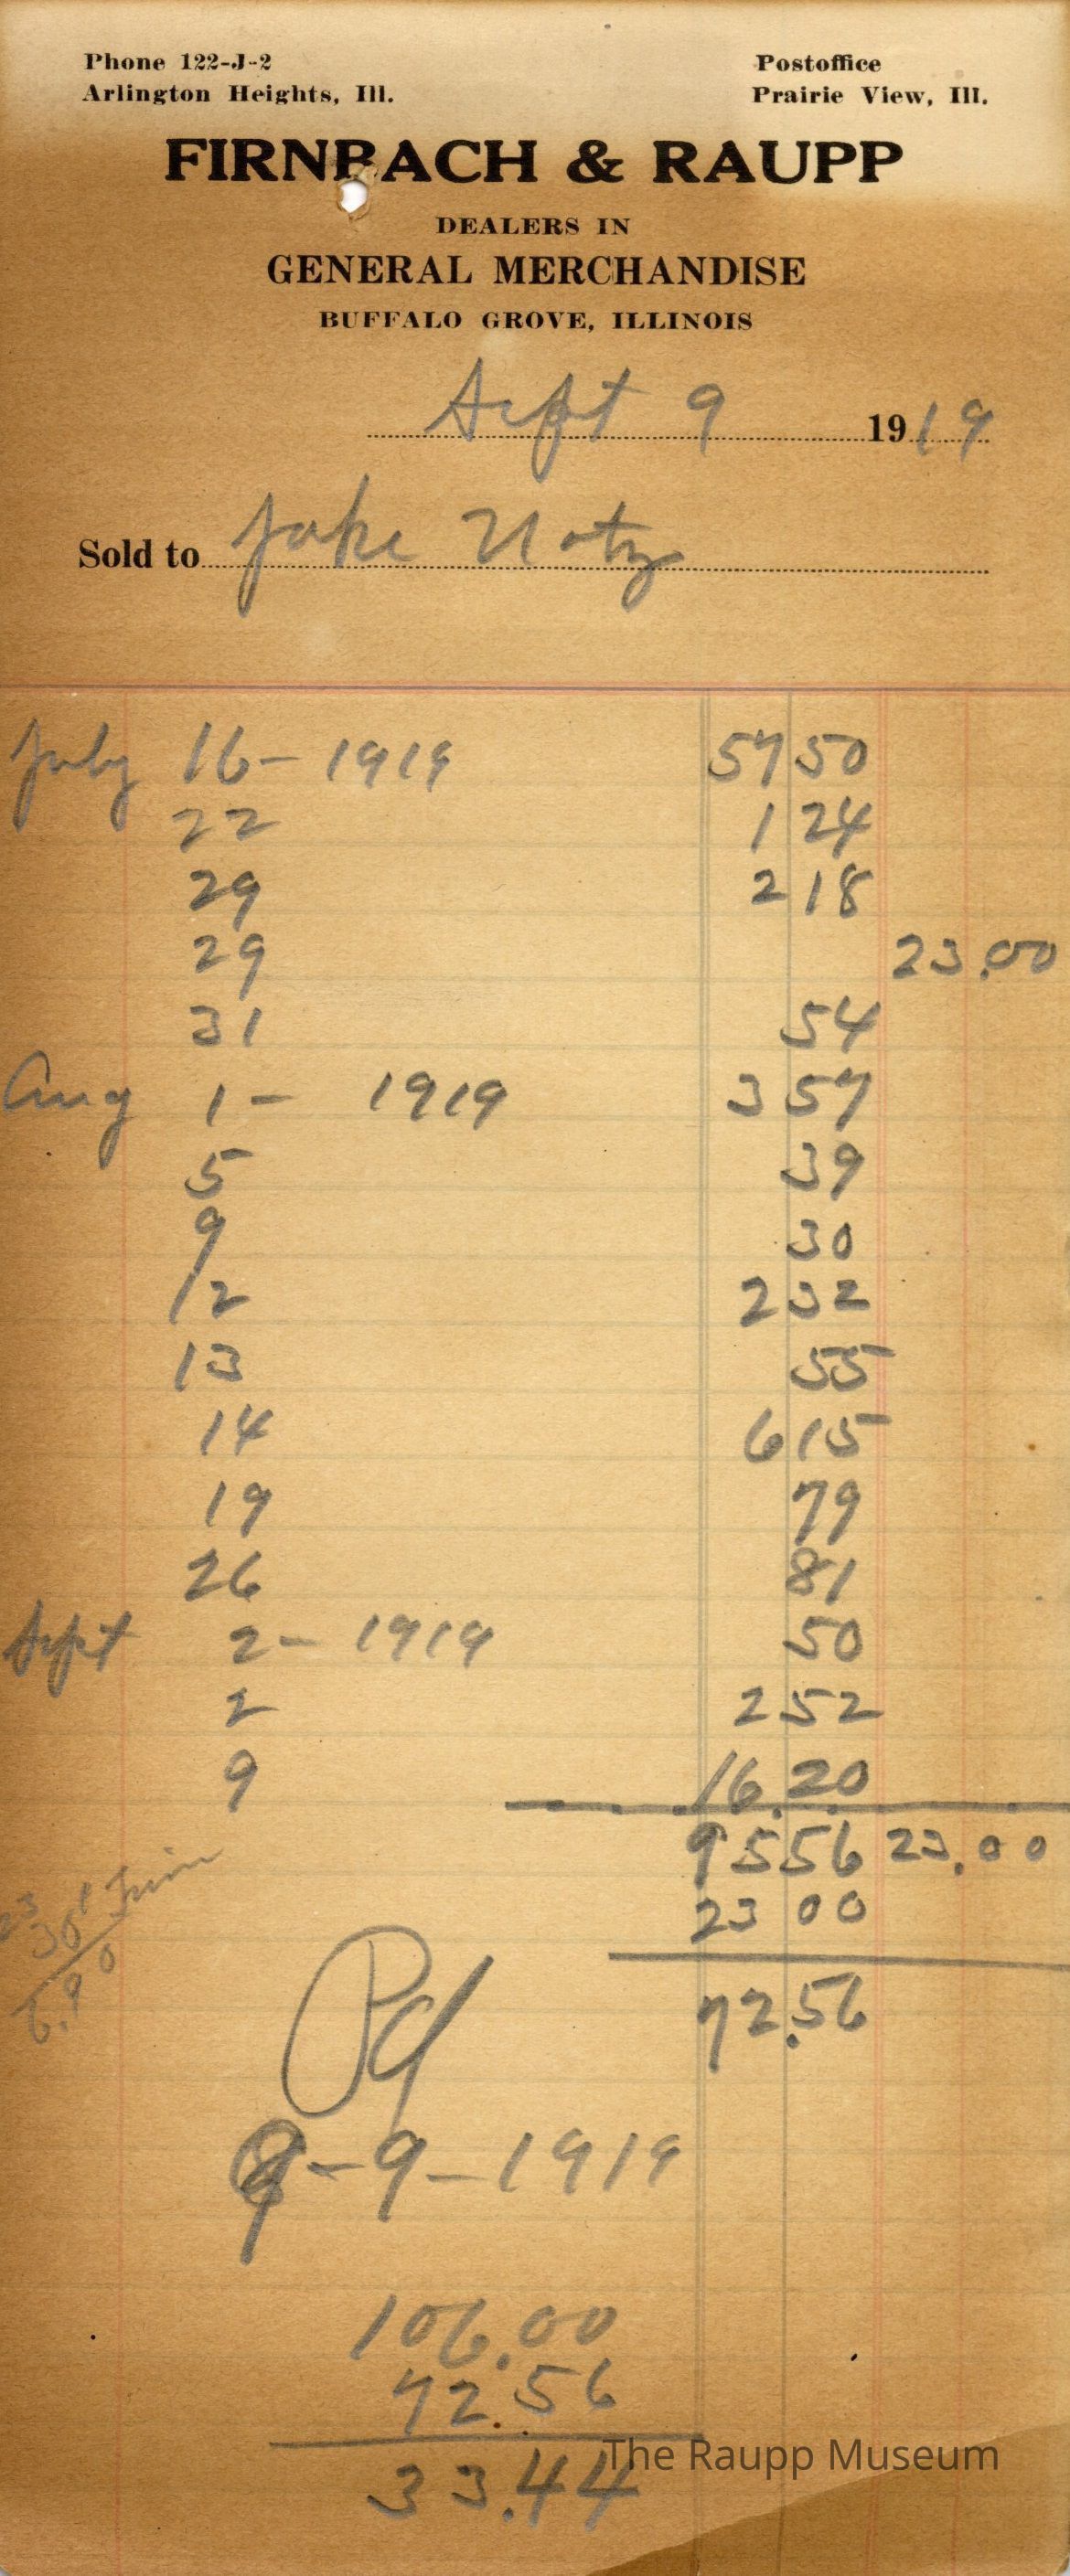 Phone 122-J-2 Postoffice
Arlington Heights, Ill. Prairie View, Ill.
FIRNBACH & RAUPP
DEALERS IN
GENERAL MERCHANDISE
BUFFALO GROVE, ILLINOIS
Sept 9 1919
Sold to Jake Notz
July 16 - 1919 57 50
22 1 24
29 2 18
29 23.00
31 54
Aug 1 - 1919 3 57
5 39
9 30
12 2 32
13 55
14 6 15
19 79
26 81
Sept 2 - 1919 50
2 2 52
9 16.20
95 56 23.00
23 00
72.56
23
30
6.90
Pd
9-9-1919
106.00
72.56
33.44
The Raupp Museum